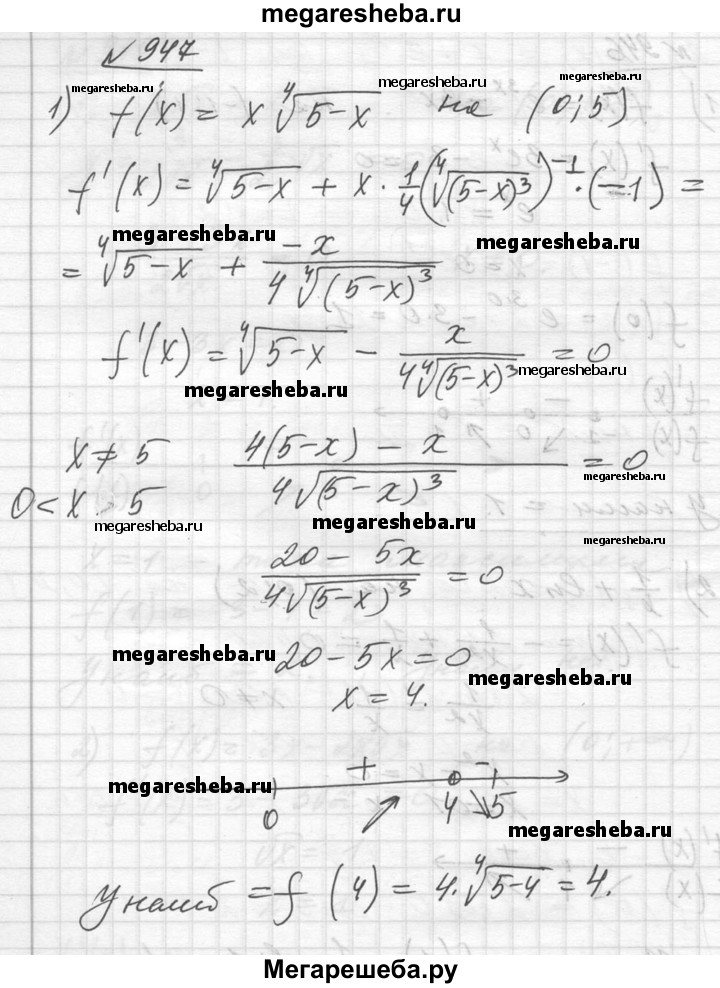 megaresheba.ru
№ 947
megaresheba.ru megaresheba.ru megaresheba.ru
1) f(x) = x ∜(5-x) на (0; 5)
f'(x) = ∜(5-x) + x · 1/4 (∜(5-x)³)⁻¹ · (-1) =
megaresheba.ru megaresheba.ru
= ∜(5-x) + -x / 4∜(5-x)³
f'(x) = ∜(5-x) - x / 4∜(5-x)³ = 0
megaresheba.ru megaresheba.ru
x ≠ 5 4(5-x) - x / 4√(5-x)³ = 0
0 < x < 5
megaresheba.ru megaresheba.ru megaresheba.ru
megaresheba.ru
20 - 5x / 4√(5-x)³ = 0
megaresheba.ru 20 - 5x = 0
megaresheba.ru
x = 4.
megaresheba.ru + -
0 4 5
megaresheba.ru
y наиб = f (4) = 4·∜(5-4) = 4.
Мегарешеба.ру